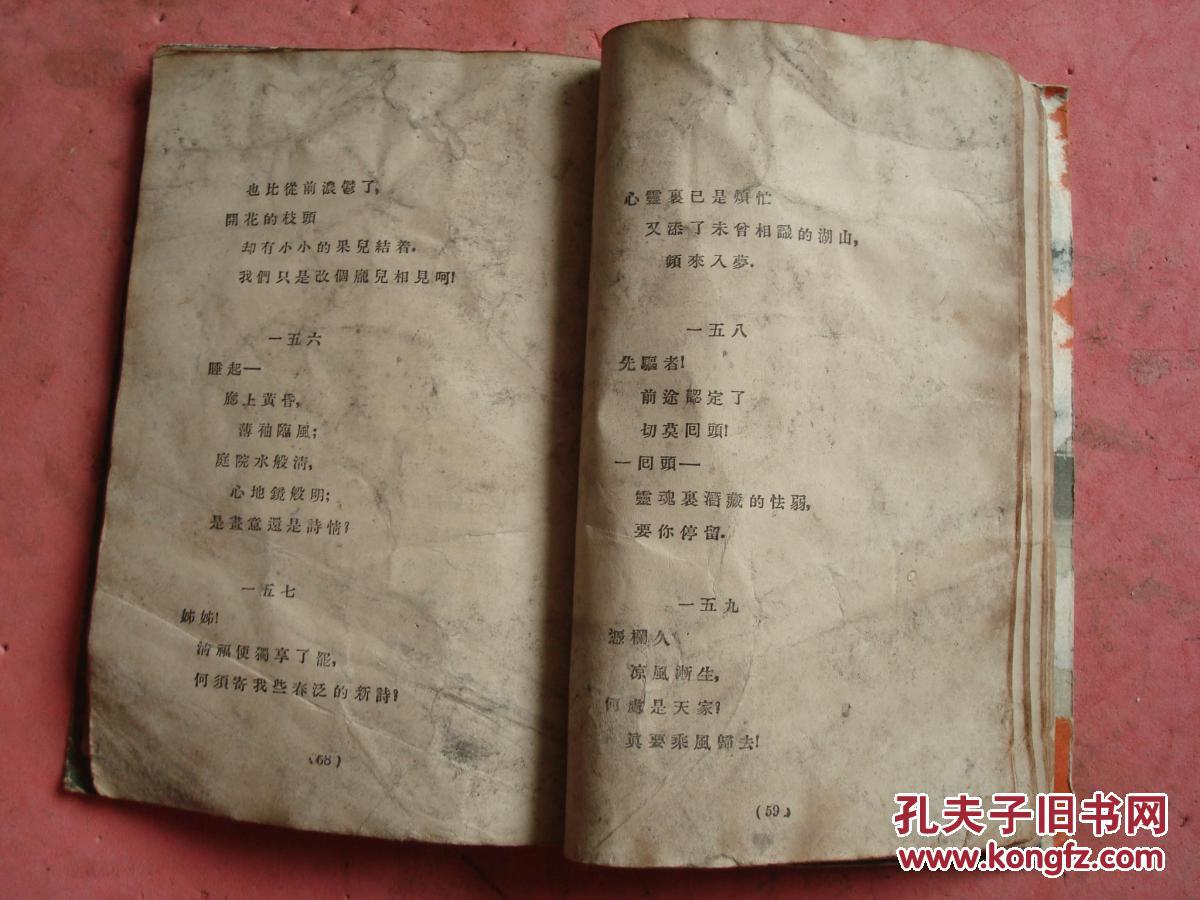 也比從前濃鬱了,
開花的枝頭
却有小小的果兒結着.
我們只是改個龐兒相見呵!
一五六
睡起—
廊上黃昏,
薄袖臨風;
庭院水般清,
心地鏡般明;
是畫意還是詩情?
一五七
姊姊!
清福便獨享了罷,
何須寄我些春泛的新詩?
(68)
心靈裏已是煩忙
又添了未曾相識的湖山,
頻來入夢.
一五八
先驅者!
前途認定了
切莫囘頭!
一囘頭—
靈魂裏潛藏的怯弱,
要你停留.
一五九
憑欄久
凉風漸生,
何處是天家?
眞要乘風歸去!
(59)
孔夫子旧书网
www.kongfz.com